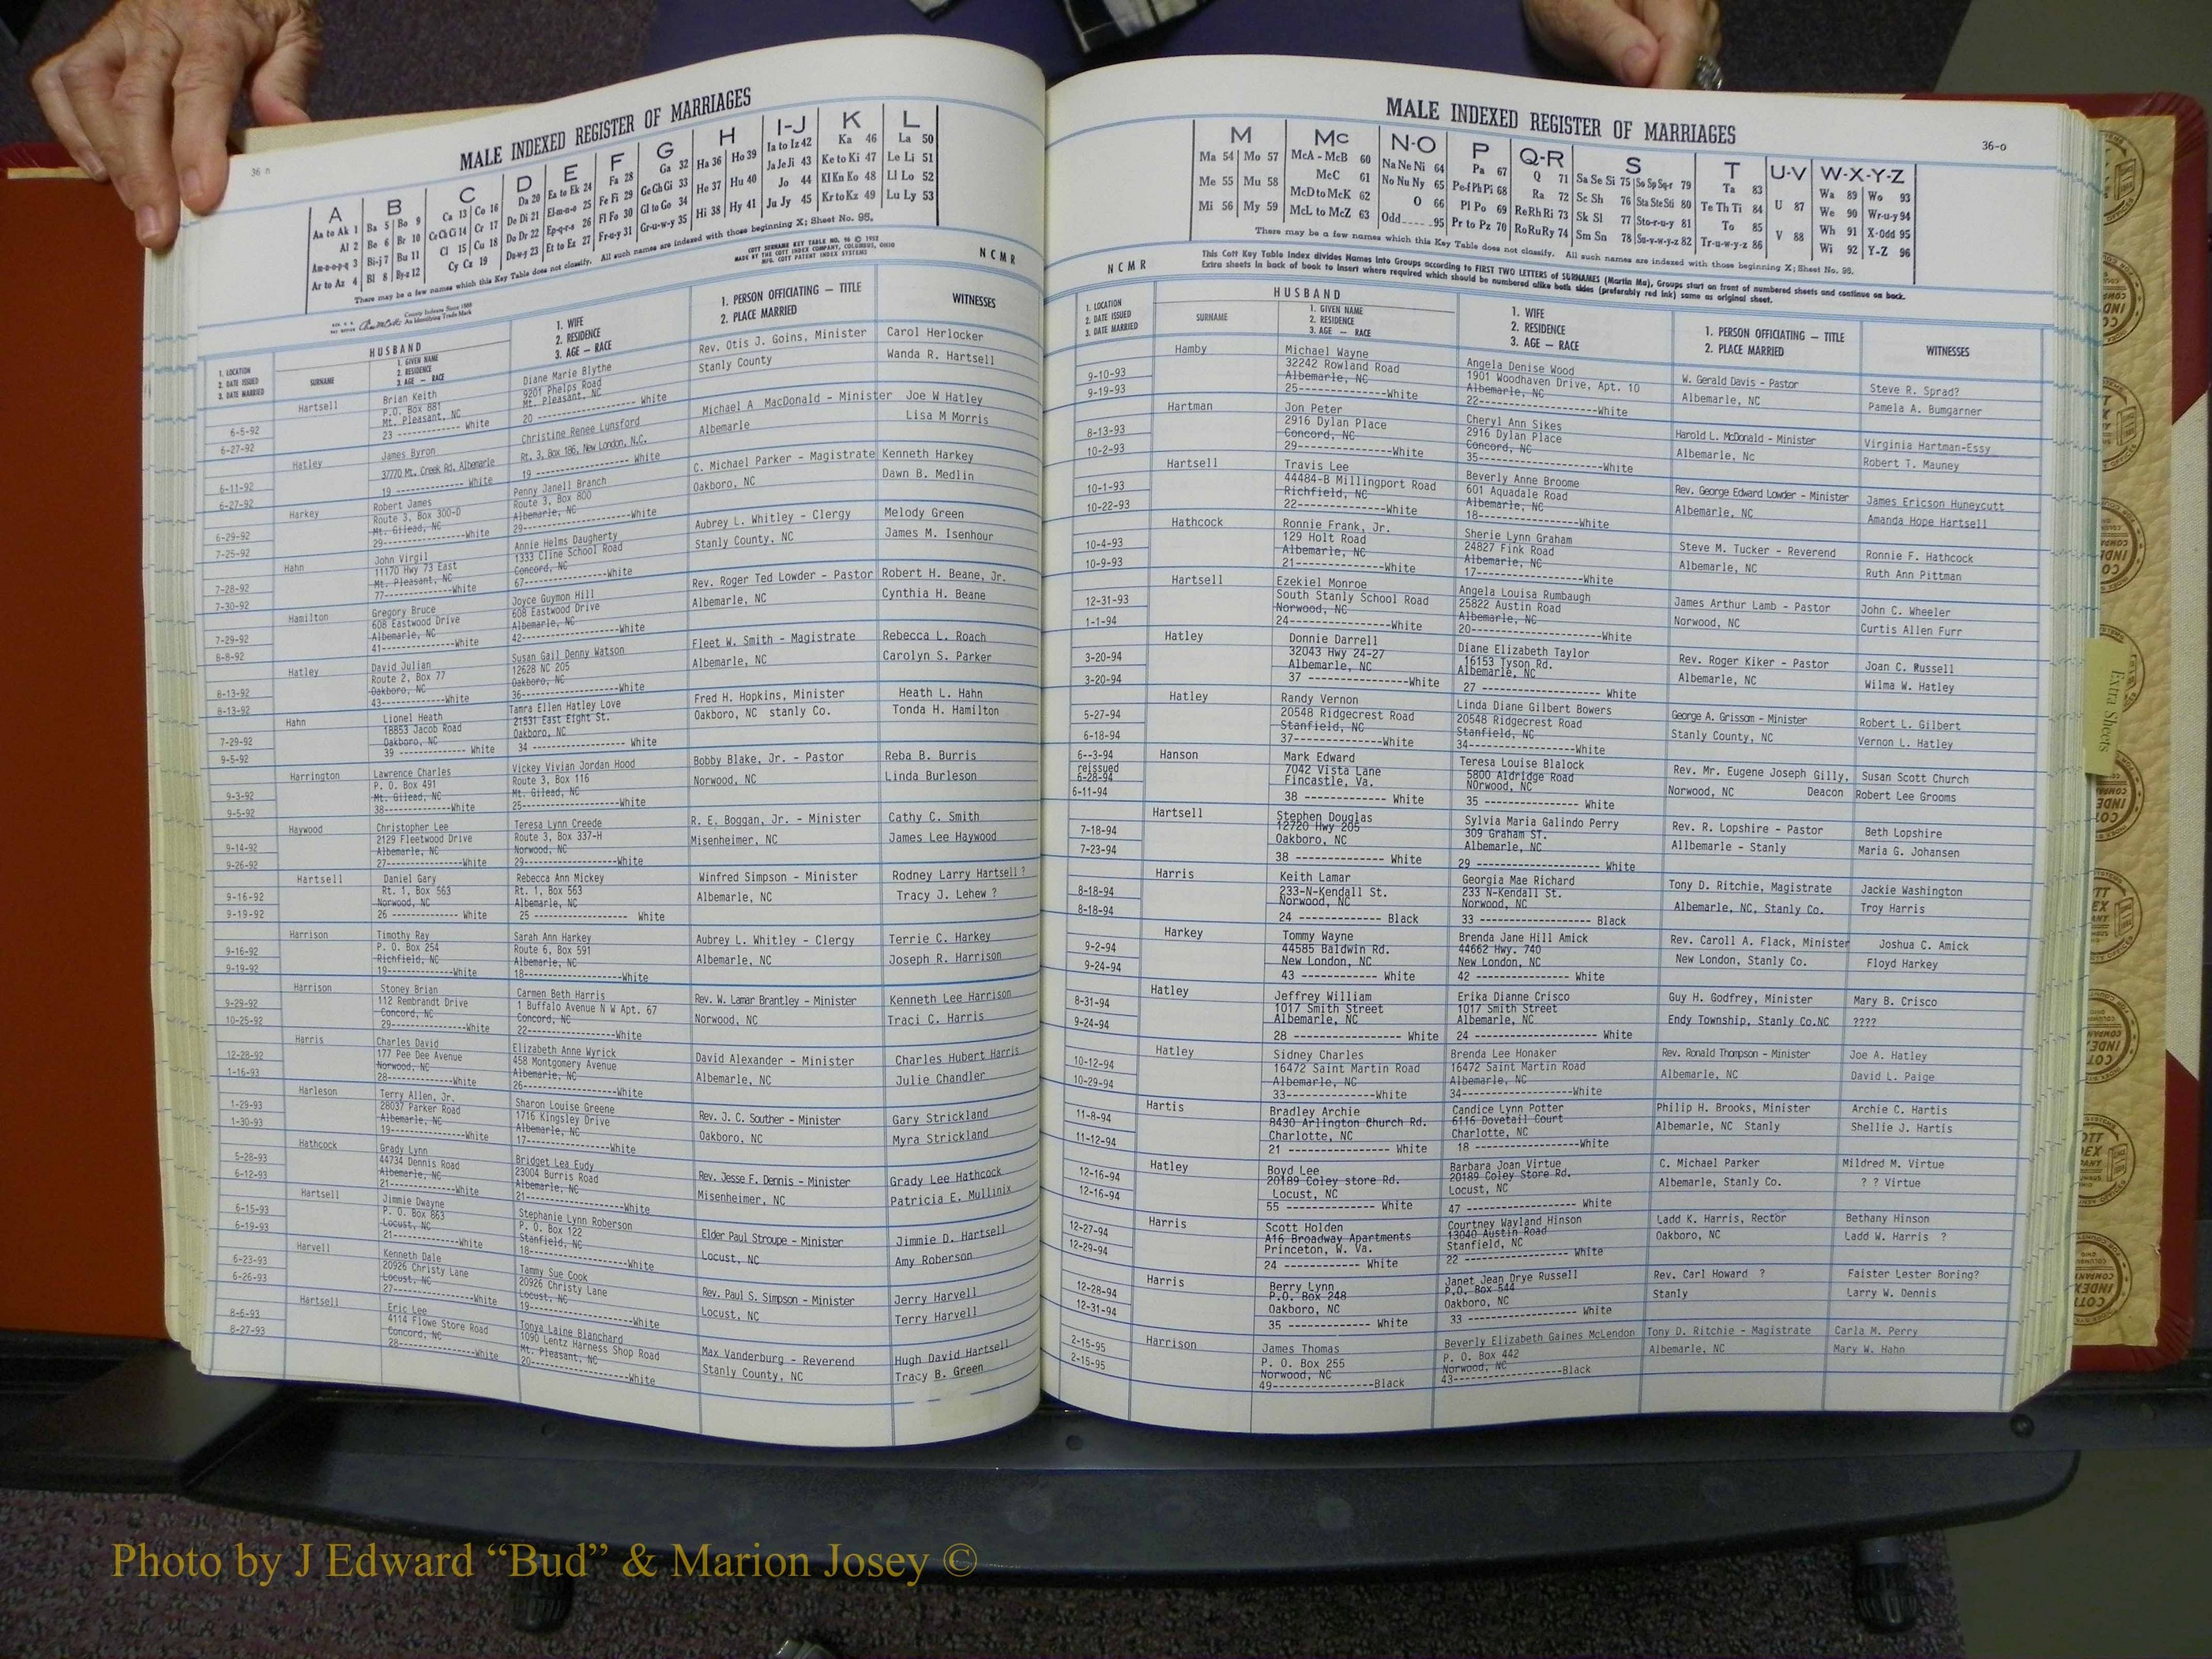 36 n
MALE INDEXED REGISTER OF MARRIAGES
A B C D E F G H I-J K L
Aa to Ak 1 Ba 5 Bo 9 Ca 13 Co 16 Da 20 Ea to Ek 24 Fa 28 Ga 32 Ha 36 Ho 39 Ia to Iz 42 Ka 46 La 50
Al 2 Be 6 Br 10 Ce Ch Ci 14 Cr 17 De Di 21 El-m-n-o 25 Fe Fi 29 Ge Gh Gi 33 He 37 Hu 40 Ja Je Ji 43 Ke to Ki 47 Le Li 51
Am-n-o-p-q 3 Bi-j 7 Bu 11 Cl 15 Cu 18 Do Dr 22 Ep-q-r-s 26 Fl Fo 30 Gl to Go 34 Hi 38 Hy 41 Jo 44 Kl Kn Ko 48 Ll Lo 52
Ar to Az 4 Bl 8 By-z 12 Cy Cz 19 Du-w-y 23 Et to Ez 27 Fr-u-y 31 Gr-u-w-y 35 Ju Jy 45 Kr to Kz 49 Lu Ly 53
There may be a few names which this Key Table does not classify. All such names are indexed with those beginning X; Sheet No. 95.
COTT SURNAME KEY TABLE NO. 96 © 1952
MADE BY THE COTT INDEX COMPANY, COLUMBUS, OHIO
MFG. COTT PATENT INDEX SYSTEMS
County Indexes Since 1888
An Identifying Trade Mark
N C M R
1. LOCATION
2. DATE ISSUED
3. DATE MARRIED
HUSBAND
SURNAME
1. GIVEN NAME
2. RESIDENCE
3. AGE — RACE
1. WIFE
2. RESIDENCE
3. AGE — RACE
1. PERSON OFFICIATING — TITLE
2. PLACE MARRIED
WITNESSES
Hartsell Brian Keith Diane Marie Blythe Rev. Otis J. Goins, Minister Carol Herlocker
P.O. Box 881 9201 Phelps Road Stanly County Wanda R. Hartsell
6-5-92 Mt. Pleasant, NC Mt. Pleasant, NC
6-27-92 23 ---------- White 20 ---------- White
Hatley James Byron Christine Renee Lunsford Michael A MacDonald - Minister Joe W Hatley
6-11-92 37770 Mt. Creek Rd. Albemarle Rt. 3, Box 186, New London, N.C. Albemarle Lisa M Morris
6-27-92 19 ---------- White 19 ---------- White
Harkey Robert James Penny Janell Branch C. Michael Parker - Magistrate Kenneth Harkey
Route 3, Box 300-D Route 3, Box 800 Oakboro, NC Dawn B. Medlin
6-29-92 Mt. Gilead, NC Albemarle, NC
7-25-92 29----------White 29----------White
Hahn John Virgil Annie Helms Daugherty Aubrey L. Whitley - Clergy Melody Green
11170 Hwy 73 East 1333 Cline School Road Stanly County, NC James M. Isenhour
7-28-92 Mt. Pleasant, NC Concord, NC
7-30-92 77----------White 67----------White
Hamilton Gregory Bruce Joyce Guymon Hill Rev. Roger Ted Lowder - Pastor Robert H. Beane, Jr.
608 Eastwood Drive 608 Eastwood Drive Albemarle, NC Cynthia H. Beane
7-29-92 Albemarle, NC Albemarle, NC
8-8-92 41----------White 42----------White
Hatley David Julian Susan Gail Denny Watson Fleet W. Smith - Magistrate Rebecca L. Roach
Route 2, Box 77 12628 NC 205 Albemarle, NC Carolyn S. Parker
8-13-92 Oakboro, NC Oakboro, NC
8-13-92 43----------White 36----------White
Hahn Lionel Heath Tamra Ellen Hatley Love Fred H. Hopkins, Minister Heath L. Hahn
18853 Jacob Road 21531 East Eight St. Oakboro, NC stanly Co. Tonda H. Hamilton
7-29-92 Oakboro, NC Oakboro, NC
9-5-92 39 ---------- White 34 ---------- White
Harrington Lawrence Charles Vickey Vivian Jordan Hood Bobby Blake, Jr. - Pastor Reba B. Burris
P. O. Box 491 Route 3, Box 116 Norwood, NC Linda Burleson
9-3-92 Mt. Gilead, NC Mt. Gilead, NC
9-5-92 38----------White 25----------White
Haywood Christopher Lee Teresa Lynn Creede R. E. Boggan, Jr. - Minister Cathy C. Smith
2129 Fleetwood Drive Route 3, Box 337-H Misenheimer, NC James Lee Haywood
9-14-92 Albemarle, NC Norwood, NC
9-26-92 27----------White 29----------White
Hartsell Daniel Gary Rebecca Ann Mickey Winfred Simpson - Minister Rodney Larry Hartsell ?
9-16-92 Rt. 1, Box 563 Rt. 1, Box 563 Albemarle, NC Tracy J. Lehew ?
Norwood, NC Albemarle, NC
9-19-92 26 ---------- White 25 ---------- White
Harrison Timothy Ray Sarah Ann Harkey Aubrey L. Whitley - Clergy Terrie C. Harkey
9-16-92 P. O. Box 254 Route 6, Box 591 Albemarle, NC Joseph R. Harrison
Richfield, NC Albemarle, NC
9-19-92 19----------White 18----------White
Harrison Stoney Brian Carmen Beth Harris Rev. W. Lamar Brantley - Minister Kenneth Lee Harrison
9-29-92 112 Rembrandt Drive 1 Buffalo Avenue N W Apt. 67 Norwood, NC Traci C. Harris
Concord, NC Concord, NC
10-25-92 29----------White 22----------White
Harris Charles David Elizabeth Anne Wyrick David Alexander - Minister Charles Hubert Harris
12-28-92 177 Pee Dee Avenue 458 Montgomery Avenue Albemarle, NC Julie Chandler
Norwood, NC Albemarle, NC
1-16-93 28----------White 26----------White
Harleson Terry Allen, Jr. Sharon Louise Greene Rev. J. C. Souther - Minister Gary Strickland
1-29-93 28037 Parker Road 1716 Kingsley Drive Oakboro, NC Myra Strickland
Albemarle, NC Albemarle, NC
1-30-93 19----------White 17----------White
Hathcock Grady Lynn Bridget Lea Eudy Rev. Jesse F. Dennis - Minister Grady Lee Hathcock
5-28-93 44734 Dennis Road 23004 Burris Road Misenheimer, NC Patricia E. Mullinix
Albemarle, NC Albemarle, NC
6-12-93 21----------White 21----------White
Hartsell Jimmie Dwayne Stephanie Lynn Roberson Elder Paul Stroupe - Minister Jimmie D. Hartsell
6-15-93 P. O. Box 863 P. O. Box 122 Locust, NC Amy Roberson
Locust, NC Stanfield, NC
6-19-93 21----------White 18----------White
Harvell Kenneth Dale Tammy Sue Cook Rev. Paul S. Simpson - Minister Jerry Harvell
6-23-93 20926 Christy Lane 20926 Christy Lane Locust, NC Terry Harvell
Locust, NC Locust, NC
6-26-93 27----------White 19----------White
Hartsell Eric Lee Tonya Laine Blanchard Max Vanderburg - Reverend Hugh David Hartsell
8-6-93 4114 Flowe Store Road 1090 Lentz Harness Shop Road Stanly County, NC Tracy B. Green
Concord, NC Mt. Pleasant, NC
8-27-93 28----------White 20----------White
MALE INDEXED REGISTER OF MARRIAGES
36-o
M Mc N-O P Q-R S T U-V W-X-Y-Z
Ma 54 Mo 57 McA - McB 60 Na Ne Ni 64 Pa 67 Q 71 Sa Se Si 75 So Sp Sq-r 79 Ta 83 U 87 Wa 89 Wo 93
Me 55 Mu 58 McC 61 No Nu Ny 65 Pe-f Ph Pi 68 Ra 72 Sc Sh 76 Sta Ste Sti 80 Te Th Ti 84 V 88 We 90 Wr-u-y 94
Mi 56 My 59 McD to McK 62 O 66 Pl Po 69 Re Rh Ri 73 Sk Sl 77 Sto-r-u-y 81 To 85 Wh 91 X-Odd 95
McL to McZ 63 Odd 95 Pr to Pz 70 Ro Ru Ry 74 Sm Sn 78 Su-v-w-y-z 82 Tr-u-w-y-z 86 Wi 92 Y-Z 96
There may be a few names which this Key Table does not classify. All such names are indexed with those beginning X; Sheet No. 95.
This Cott Key Table Index divides Names into Groups according to FIRST TWO LETTERS of SURNAMES (Martin Ma), Groups start on front of numbered sheets and continue on back.
Extra sheets in back of book to insert where required which should be numbered alike both sides (preferably red ink) same as original sheet.
N C M R
1. LOCATION
2. DATE ISSUED
3. DATE MARRIED
HUSBAND
SURNAME
1. GIVEN NAME
2. RESIDENCE
3. AGE — RACE
1. WIFE
2. RESIDENCE
3. AGE — RACE
1. PERSON OFFICIATING — TITLE
2. PLACE MARRIED
WITNESSES
Hamby Michael Wayne Angela Denise Wood W. Gerald Davis - Pastor Steve R. Sprad?
9-10-93 32242 Rowland Road 1901 Woodhaven Drive, Apt. 10 Albemarle, NC Pamela A. Bumgarner
Albemarle, NC Albemarle, NC
9-19-93 25----------White 22----------White
Hartman Jon Peter Cheryl Ann Sikes Harold L. McDonald - Minister Virginia Hartman-Essy
8-13-93 2916 Dylan Place 2916 Dylan Place Albemarle, Nc Robert T. Mauney
Concord, NC Concord, NC
10-2-93 29----------White 35----------White
Hartsell Travis Lee Beverly Anne Broome Rev. George Edward Lowder - Minister James Ericson Huneycutt
10-1-93 44484-B Millingport Road 601 Aquadale Road Albemarle, NC Amanda Hope Hartsell
Richfield, NC Albemarle, NC
10-22-93 22----------White 18----------White
Hathcock Ronnie Frank, Jr. Sherie Lynn Graham Steve M. Tucker - Reverend Ronnie F. Hathcock
10-4-93 129 Holt Road 24827 Fink Road Albemarle, NC Ruth Ann Pittman
Albemarle, NC Albemarle, NC
10-9-93 21----------White 17----------White
Hartsell Ezekiel Monroe Angela Louisa Rumbaugh James Arthur Lamb - Pastor John C. Wheeler
12-31-93 South Stanly School Road 25822 Austin Road Norwood, NC Curtis Allen Furr
Norwood, NC Albemarle, NC
1-1-94 24----------White 20----------White
Hatley Donnie Darrell Diane Elizabeth Taylor Rev. Roger Kiker - Pastor Joan C. Russell
3-20-94 32043 Hwy 24-27 16153 Tyson Rd. Albemarle, NC Wilma W. Hatley
Albemarle, NC Albemarle, NC
3-20-94 37 ----------White 27 ---------- White
Hatley Randy Vernon Linda Diane Gilbert Bowers George A. Grissom - Minister Robert L. Gilbert
5-27-94 20548 Ridgecrest Road 20548 Ridgecrest Road Stanly County, NC Vernon L. Hatley
Stanfield, NC Stanfield, NC
6-18-94 37----------White 34----------White
6--3-94 Hanson Mark Edward Teresa Louise Blalock Rev. Mr. Eugene Joseph Gilly, Susan Scott Church
reissued 7042 Vista Lane 5800 Aldridge Road Norwood, NC Deacon Robert Lee Grooms
6-28-94 Fincastle, Va. Norwood, NC
6-11-94 38 ---------- White 35 ---------- White
Hartsell Stephen Douglas Sylvia Maria Galindo Perry Rev. R. Lopshire - Pastor Beth Lopshire
7-18-94 12720 Hwy 205 309 Graham ST. Allbemarle - Stanly Maria G. Johansen
7-23-94 Oakboro, NC Albemarle, NC
38 ---------- White 29 ---------- White
Harris Keith Lamar Georgia Mae Richard Tony D. Ritchie, Magistrate Jackie Washington
8-18-94 233-N-Kendall St. 233 N-Kendall St. Albemarle, NC, Stanly Co. Troy Harris
8-18-94 Norwood, NC Norwood, NC
24 ---------- Black 33 ---------- Black
Harkey Tommy Wayne Brenda Jane Hill Amick Rev. Caroll A. Flack, Minister Joshua C. Amick
9-2-94 44585 Baldwin Rd. 44662 Hwy. 740 New London, Stanly Co. Floyd Harkey
9-24-94 New London, NC New London, NC
43 ---------- White 42 ---------- White
Hatley Jeffrey William Erika Dianne Crisco Guy H. Godfrey, Minister Mary B. Crisco
8-31-94 1017 Smith Street 1017 Smith Street Endy Township, Stanly Co.NC ????
9-24-94 Albemarle, NC Albemarle, NC
28 ---------- White 24 ---------- White
Hatley Sidney Charles Brenda Lee Honaker Rev. Ronald Thompson - Minister Joe A. Hatley
10-12-94 16472 Saint Martin Road 16472 Saint Martin Road Albemarle, NC David L. Paige
10-29-94 Albemarle, NC Albemarle, NC
33----------White 34----------White
Hartis Bradley Archie Candice Lynn Potter Philip H. Brooks, Minister Archie C. Hartis
11-8-94 8430 Arlington Church Rd. 6116 Dovetail Court Albemarle, NC Stanly Shellie J. Hartis
11-12-94 Charlotte, NC Charlotte, NC
21 ---------- White 18 ----------White
Hatley Boyd Lee Barbara Joan Virtue C. Michael Parker Mildred M. Virtue
12-16-94 20189 Coley store Rd. 20189 Coley Store Rd. Albemarle, Stanly Co. ? ? Virtue
12-16-94 Locust, NC Locust, NC
55 ---------- White 47 ---------- White
Harris Scott Holden Courtney Wayland Hinson Ladd K. Harris, Rector Bethany Hinson
12-27-94 A16 Broadway Apartments 13040 Austin Road Oakboro, NC Ladd W. Harris ?
12-29-94 Princeton, W. Va. Stanfield, NC
24 ---------- White 22 ---------- White
Harris Berry Lynn Janet Jean Drye Russell Rev. Carl Howard ? Faister Lester Boring?
12-28-94 P.O. Box 248 P.O. Box 544 Stanly Larry W. Dennis
12-31-94 Oakboro, NC Oakboro, NC
35 ---------- White 33 ---------- White
2-15-95 Harrison James Thomas Beverly Elizabeth Gaines McLendon Tony D. Ritchie - Magistrate Carla M. Perry
2-15-95 P. O. Box 255 P. O. Box 442 Albemarle, NC Mary W. Hahn
Norwood, NC Norwood, NC
49----------Black 43----------Black
Extra Sheets
Photo by J Edward “Bud” & Marion Josey ©